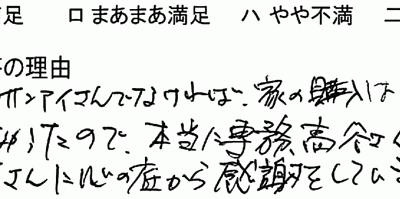 足 ロ まあまあ満足 ハ やや不満 ニ
の理由
サンアイさんでなければ、家の購入は
かったので、本当に専務、高谷さん
さんに心の底から感謝をしている